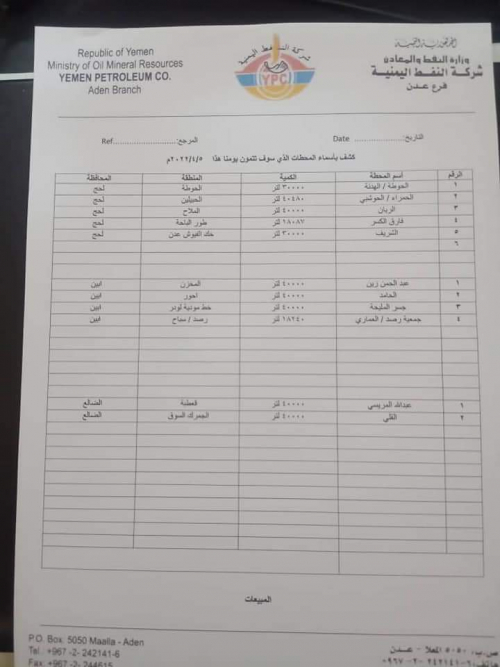 Republic of Yemen
Ministry of Oil Mineral Resources
YEMEN PETROLEUM CO.
Aden Branch
شركة النفط اليمنية
YPC
الجمهورية اليمنية
وزارة النفط والمعادن
شركة النفط اليمنية
فرع عدن
التاريخ: .................... Date
المرجع:....................Ref
كشف بأسماء المحطات الذي سوف تتمون يومنا هذا ٢٠٢٢/٤/٥م
الرقم أسم المحطة الكمية المنطقة المحافظة
١ الحوطة / الهدنة ٣٠٠٠٠ لتر الحوطة لحج
٢ الحمراء / الحوشبي ٤٠٤٨٠ لتر الحبيلين لحج
٣ الريان ٤٠٠٠٠ لتر الملاح لحج
٤ فارق الكسر ١٨٠٨٧ لتر طور الباحة لحج
٥ الشريف ٣٠٠٠٠ لتر خك الفيوش عدن لحج
٦
١ عبد الحسن زين ٤٠٠٠٠ لتر المخزن ابين
٢ الحامد ٤٠٠٠٠ لتر احور ابين
٣ جسر المليحة ٤٠٠٠٠ لتر خط مودية لودر ابين
٤ جمعية رصد / العماري ١٨٢٤٠ لتر رصد / سباح ابين
١ عبدالله المريسي ٤٠٠٠٠ لتر قعطبة الضالع
٢ القلي ٤٠٠٠٠ لتر الجمرك السوق الضالع
المبيعات
P.O. Box: 5050 Maalla - Aden
Tel. +967 -2- 242141-6
Fax +967 -2- 244615
ص.ب: ٥٠٥٠ المعلا - عدن